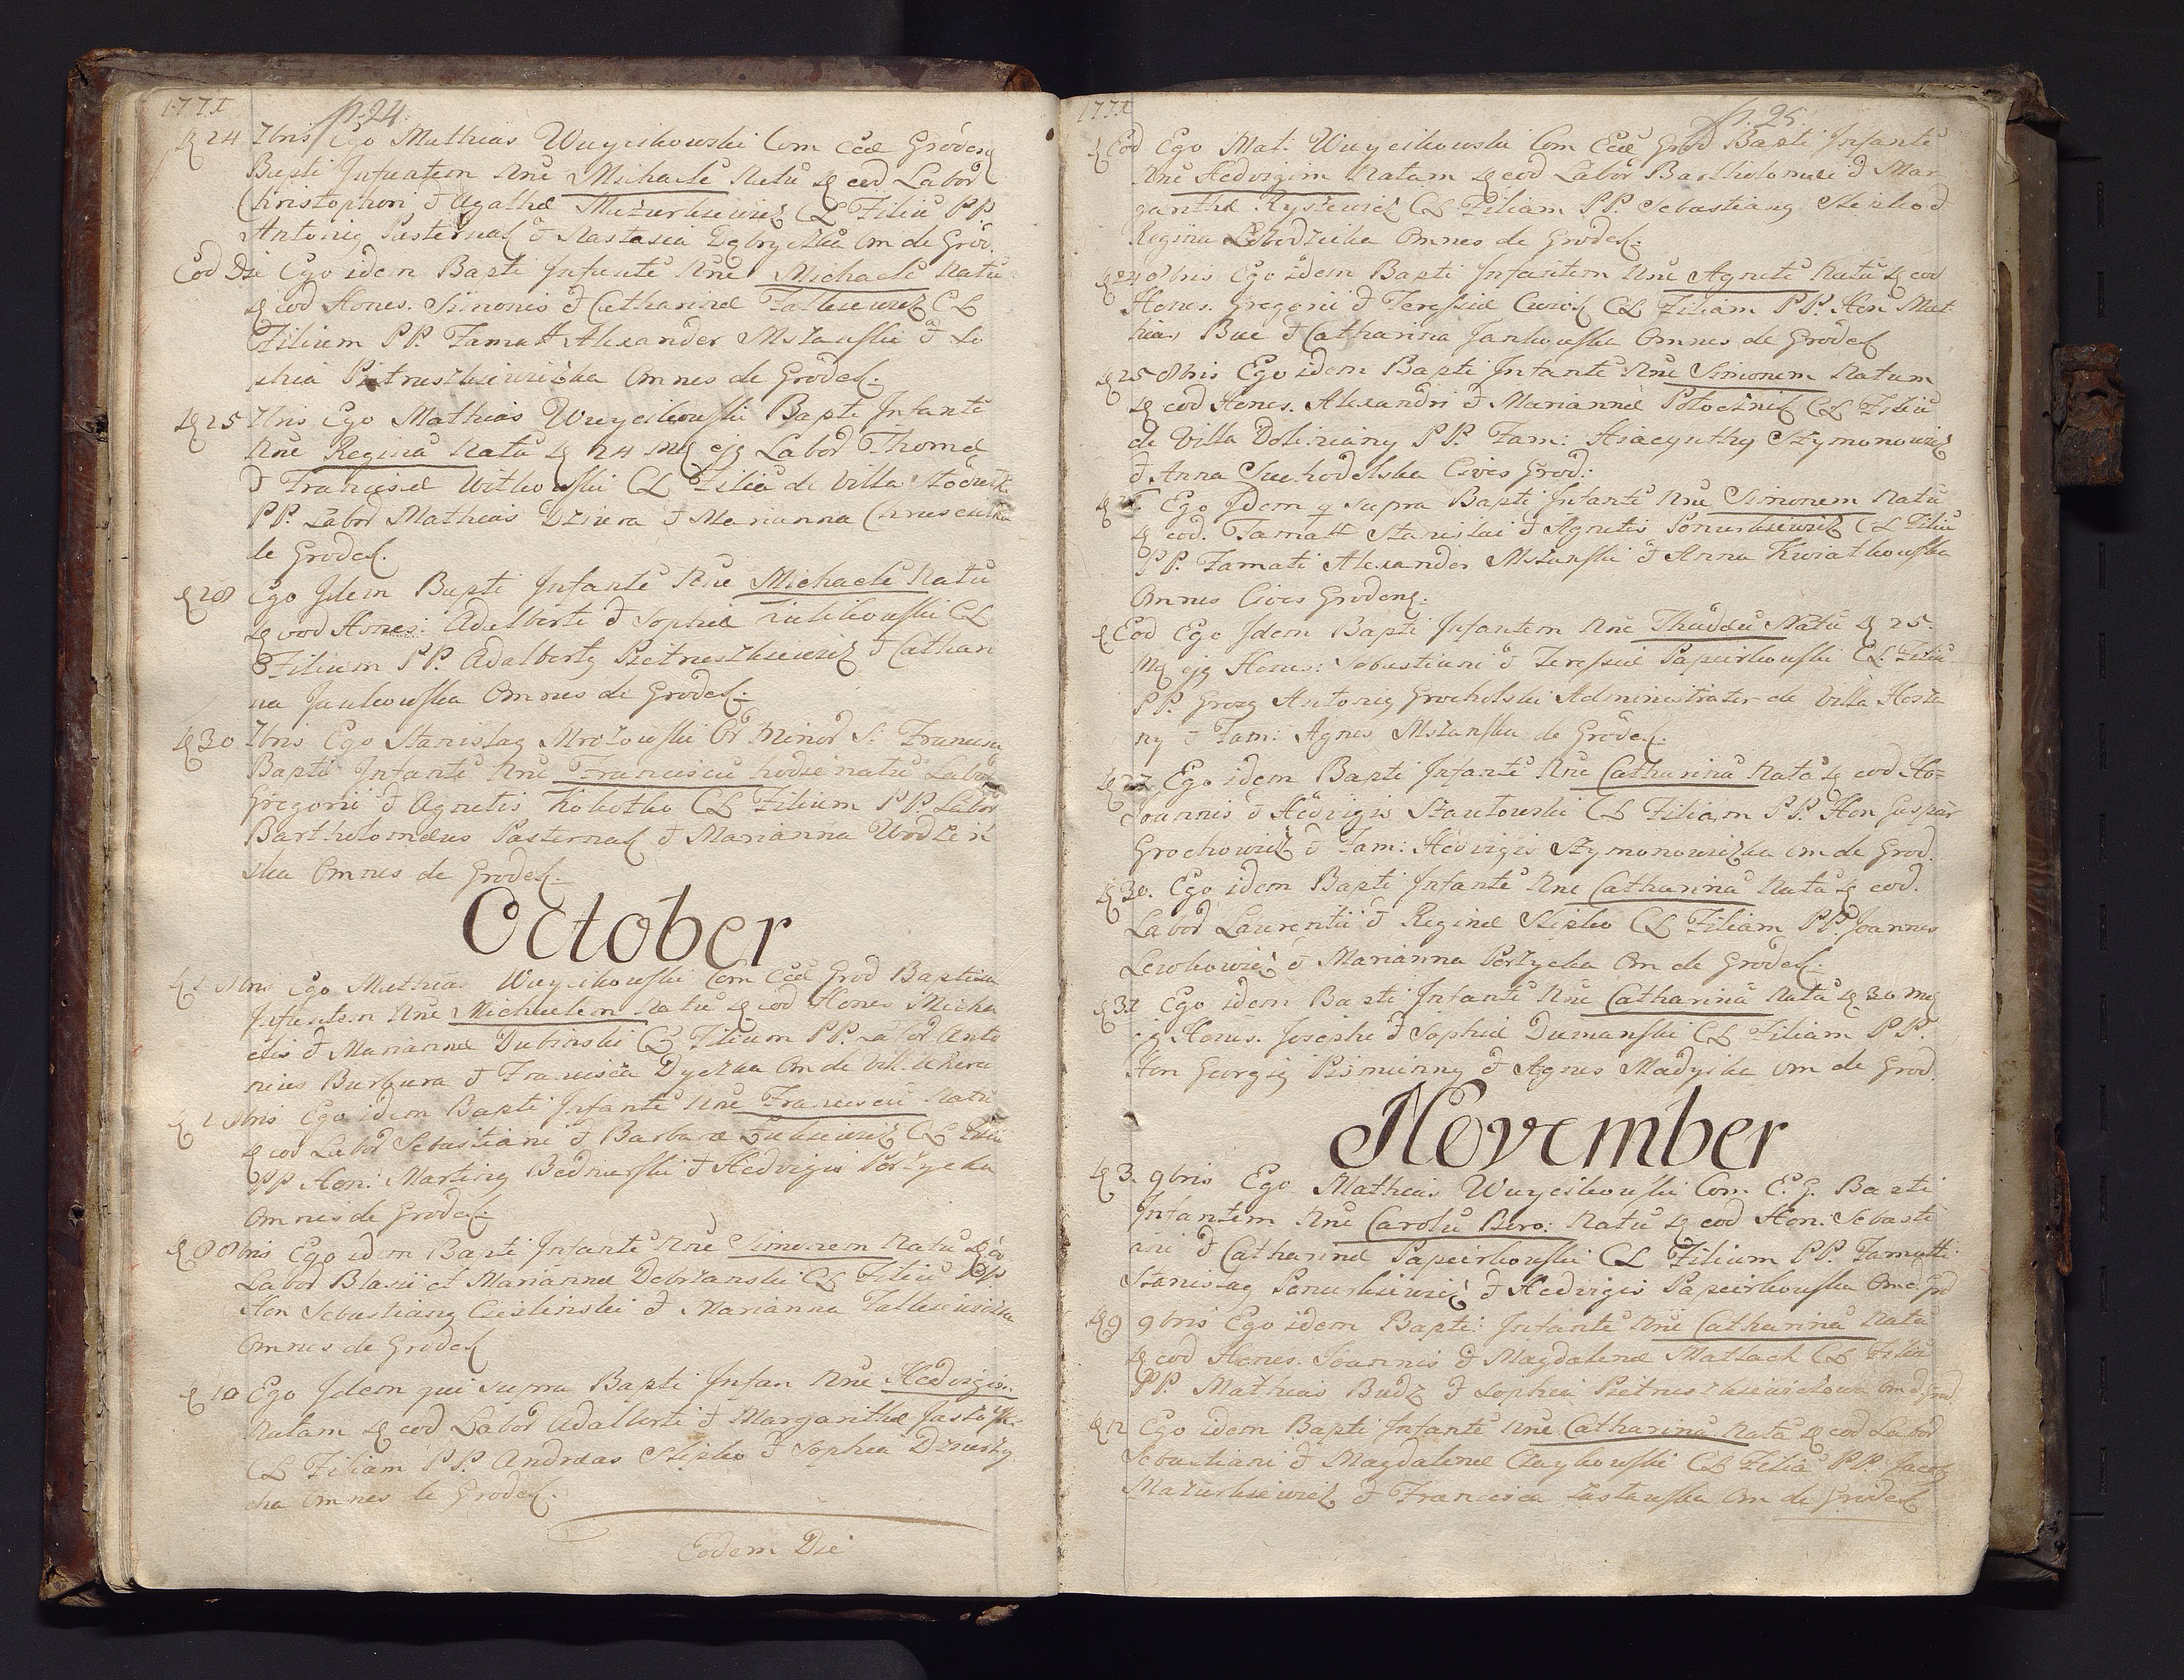 1771 p. 24.
24 7bris Ego Mathias Wuycikowski Com Ecclę Grodens
Bapti Infantem Nne Michaelē Natū eod Labor
Christophori & Agathæ Mazurkiewicz CL Filiū PP
Antonig Pasternak & Nastasia om de Grod.
Eod Die Ego idem Bapti Infantē Nne Michaelē Natū
eod Hones. Simonis & Catharinæ Falkiewicz CL
Filium PP. Famatt Alexander Mszansski & So
phia Pietruszkiewiczka Omnes de Grodek.
25 7bris Ego Mathias Wuycikowski Bapti Infantē
Nne Reginā Natā 24 ejg Labor Thomæ
& Franciscæ Witkowski CL Filiā de Villa
PP. Labor Mathias Dziura & Marianna
de Grodek.
28 Ego Idem Bapti Infantē Nne Michaelē Natū
eod Hones: Adalberti & Sophiæ CL
Filium PP. Adalbertg Pietruszkiewicz & Cathari
na Jankowska Omnes de Grodek.
30 7bris Ego Stanislag Mrozowski Or Minor S. Francisci
Bapti Infantē Nne Franciscū hodie natū Labor
Gregorii & Agnetis Kokotko CL Filium PP Labor
Bartholomæus Pasternak & Marianna Wodzin
ska Omnes de Grodek.
October
1 8bris Ego Mathias Wuycikowski Com Eccl Grod Baptisa
Infantem Nne Michaelem Natū eod Hones Micha
elis & Mariannæ Dubinski CL Filium PP. Labor Anto
nius Burbura & Francisca Dyczka Om de Vill.
2 8bris Ego idem Bapti Infantē Nne Franciscū Natū
eod Labor Sebastiani & Barbaræ Łukiewicz CL Filiū
PP Hon: Marting Bednarski & Hedvigis Porzycka
Omnes de Grodek.
8 8bris Ego idem Bapti Infantē Nne Simonem Natū eo
Labor Blasii et Mariannæ Debrzanski CL Filiū PP
Hon Sebastiang Cieslinski & Marianna Falkiewiczka
Omnes de Grodek
10 Ego Idem qui supra Bapti Infan Nne Hedvigim
Natam eod Labor Adalberti & Margarithæ
CL Filiam PP. Andræas Slipko & Sophia
cka Omnes de Grodek.
Eodem Die
1771 p. 25.
Eod Ego Mat: Wuycikowski Com Eccl Grod Bapti Infantē
Nne Hedvigim Natam eod Labor Bartholomæi & Mar
garithæ Ryszewicz CL Filiam PP. Sebastiang Slipko &
Regina Lebedzicka Omnes de Grodek.
24 8bris Ego idem Bapti Infantem Nne Agnetē Natā eod
Hones. Gregorii & Teressiæ CL Filiam PP. Hon Mat
hias Buc & Catharina Jankowska Omnes de Grodek
25 8bris Ego idem Bapti Infantē Nne Simonem Natum
eod Hones. Alexandri & Mariannæ Potocznik CL Filiū
de Villa Doliniany PP. Fam: Hiacynthg Szymonowicz
& Anna Suchodolska Cives Grod:
Ego Idem q supra Bapti Infantē Nne Simonem Natū
eod. Famatt Stanislai & Agnetis Ponurkiewicz CL Filiū
PP. Famati Alexander Mszanski & Anna Kwiatkowska
Omnes Cives Grodens.
Eod Ego Idem Bapti Infantem Nne Thadæū Natū 25.
ejg Hones: Sebastiani & Teressiæ Papeirkowski CL. Filiū
PP. Antonig Grocholski Administrator de Villa
ny & Fam: Agnes Mszanska de Grodek.
27 Ego idem Bapti Infantē Nne Catharinā Natā eod Ho=
Joannis & Hedvigis Szautowski CL Filiam PP. Hon Gaspar
Grochowicz & Fam: Hedvigis Szymonowiczka om de Grod.
30. Ego idem Bapti Infantē Nne Catharinā Natā eod.
Labor Laurentii & Reginæ Slipko CL Filiam PP. Joannes
Lewkowicz & Marianna Porzycka Om de Grodek.
31 Ego idem Bapti Infantē Nne Catharinā Natā 30
ejg Hones. Josephi & Sophiæ Dumanski CL Filiam PP.
Hon Georgig Pismienny & Agnes Madyska om de Grod.
November
3. 9bris Ego Mathias Wuycikowski Com E. G. Bapti
Infantem Nne Carolū Boro: Natū eod Hon: Sebasti
ani & Catharinæ Papeirkowski CL Filium PP. Famatti
Stanislag Ponurkiewicz & Hedvigis Papeirkowska Om
9 9bris Ego idem Bapti: Infantē Nne Catharinā Natā
eod Hones. Joannis & Magdalenæ Matlach CL Filiā
PP. Mathias Budz & Sophia Pietruszkiewiczowa
12 Ego idem Bapti Infantē Nne Catharinā Natā eod Labor
Sebastiani & Magdalenæ Czaykowski CL Filiā PP. Jacobg
Mazurkiewicz & Francisca Om de Grodek